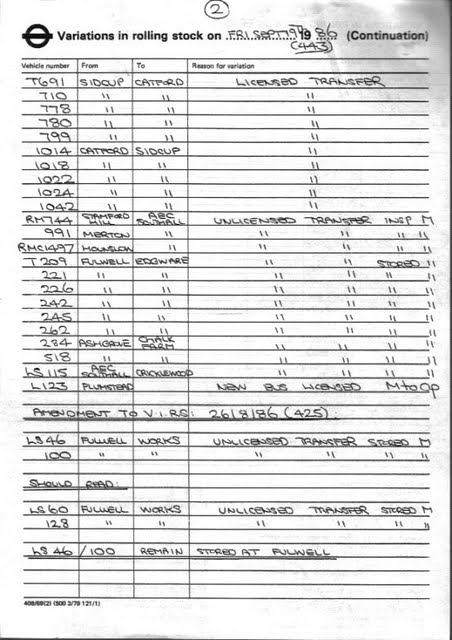 2
Variations in rolling stock on FRI SEPT 19TH 19 86 (Continuation)
(443)
Vehicle number From To Reason for variation
T691 SIDCUP CATFORD LICENSED TRANSFER
710 " " "
778 " " "
780 " " "
799 " " "
1014 CATFORD SIDCUP "
1018 " " "
1022 " " "
1024 " " "
1042 " " "
RM744 STAMFORD HILL AEC SOUTHALL UNLICENSED TRANSFER INSP M
991 MERTON " " " " "
RMC1497 HOUNSLOW " " " " "
T209 FULWELL EDGWARE " " STORED "
221 " " " " " "
226 " " " " " "
242 " " " " " "
245 " " " " " "
262 " " " " " "
284 ASHGROVE CHALK FARM " " " "
518 " " " " " "
LS115 AEC SOUTHALL CRICKLEWOOD " " " "
L123 PLUMSTEAD NEW BUS LICENSED M to Op
AMENDMENT TO V.I.R.S: 26/8/86 (425).
LS46 FULWELL WORKS UNLICENSED TRANSFER STORED M
100 " " " " " "
SHOULD READ:
LS60 FULWELL WORKS UNLICENSED TRANSFER STORED M
128 " " " " " "
LS46/100 REMAIN STORED AT FULWELL
408/69(2) (500 3/79 121/1)